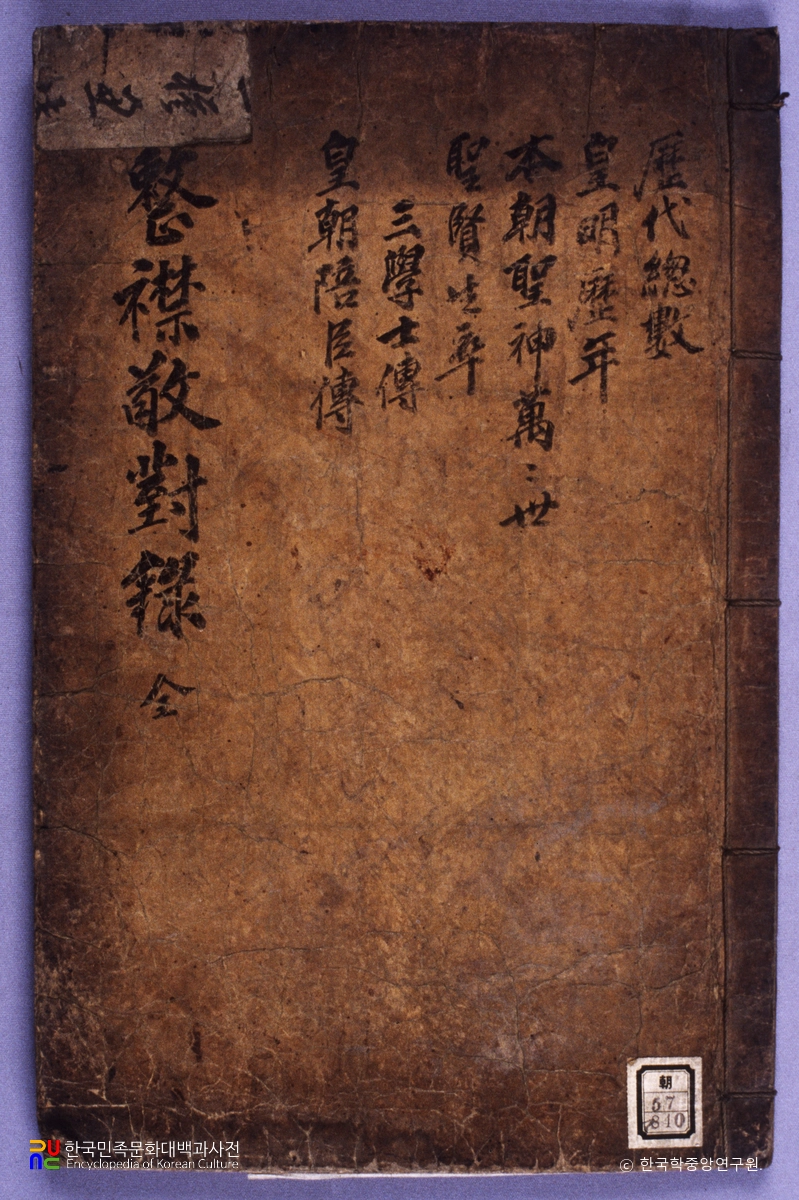 歷代總數
皇明歷年
本朝聖神萬〻世
聖賢生卒
三學士傳
皇朝陪臣傳
整襟敬對錄 全
朝
57
810
한국민족문화대백과사전
Encyclopedia of Korean Culture
© 한국학중앙연구원.